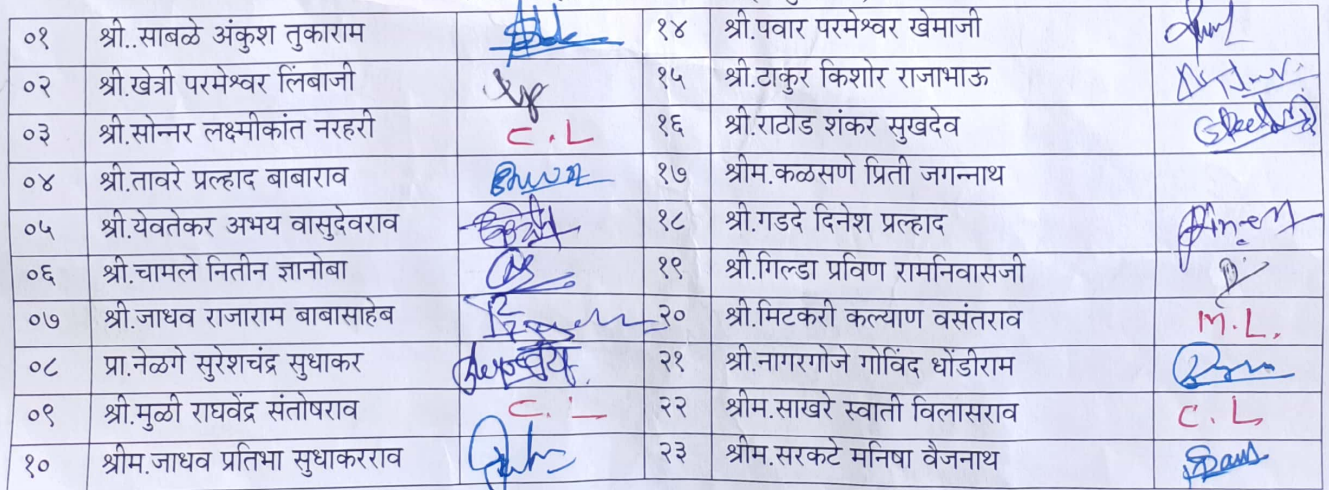 ०१ श्री..साबळे अंकुश तुकाराम १४ श्री.पवार परमेश्वर खेमाजी
०२ श्री.खेत्री परमेश्वर लिंबाजी १५ श्री.ठाकुर किशोर राजाभाऊ
०३ श्री.सोन्नर लक्ष्मीकांत नरहरी C.L १६ श्री.राठोड शंकर सुखदेव
०४ श्री.तावरे प्रल्हाद बाबाराव १७ श्रीम.कळसणे प्रिती जगन्नाथ
०५ श्री.येवतेकर अभय वासुदेवराव १८ श्री.गडदे दिनेश प्रल्हाद
०६ श्री.चामले नितीन ज्ञानोबा १९ श्री.गिल्डा प्रविण रामनिवासजी
०७ श्री.जाधव राजाराम बाबासाहेब २० श्री.मिटकरी कल्याण वसंतराव M.L.
०८ प्रा.नेळगे सुरेशचंद्र सुधाकर २१ श्री.नागरगोजे गोविंद धोंडीराम
०९ श्री.मुळी राघवेंद्र संतोषराव C.L २२ श्रीम.साखरे स्वाती विलासराव C.L
१० श्रीम.जाधव प्रतिभा सुधाकरराव २३ श्रीम.सरकटे मनिषा वैजनाथ